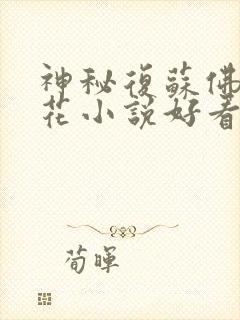 神秘復蘇佛
花小說好看
荀暉